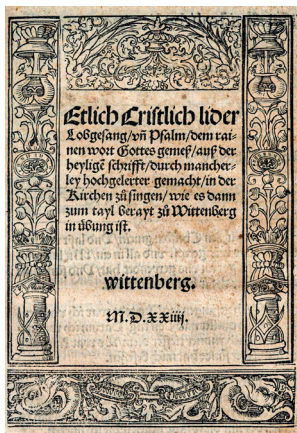 Etlich Cristlich lider
Lobgesang/vñ Psalm/dem rai-
nen wort Gottes gemeß/auß der
heyligẽ schrifft/durch mancher-
ley hochgelerter gemacht/in der
Kirchen zů singen/wie es dann
zum tayl berayt zů Wittenberg
in ůbung ist.
wittenberg.
M.D.XXiiij.